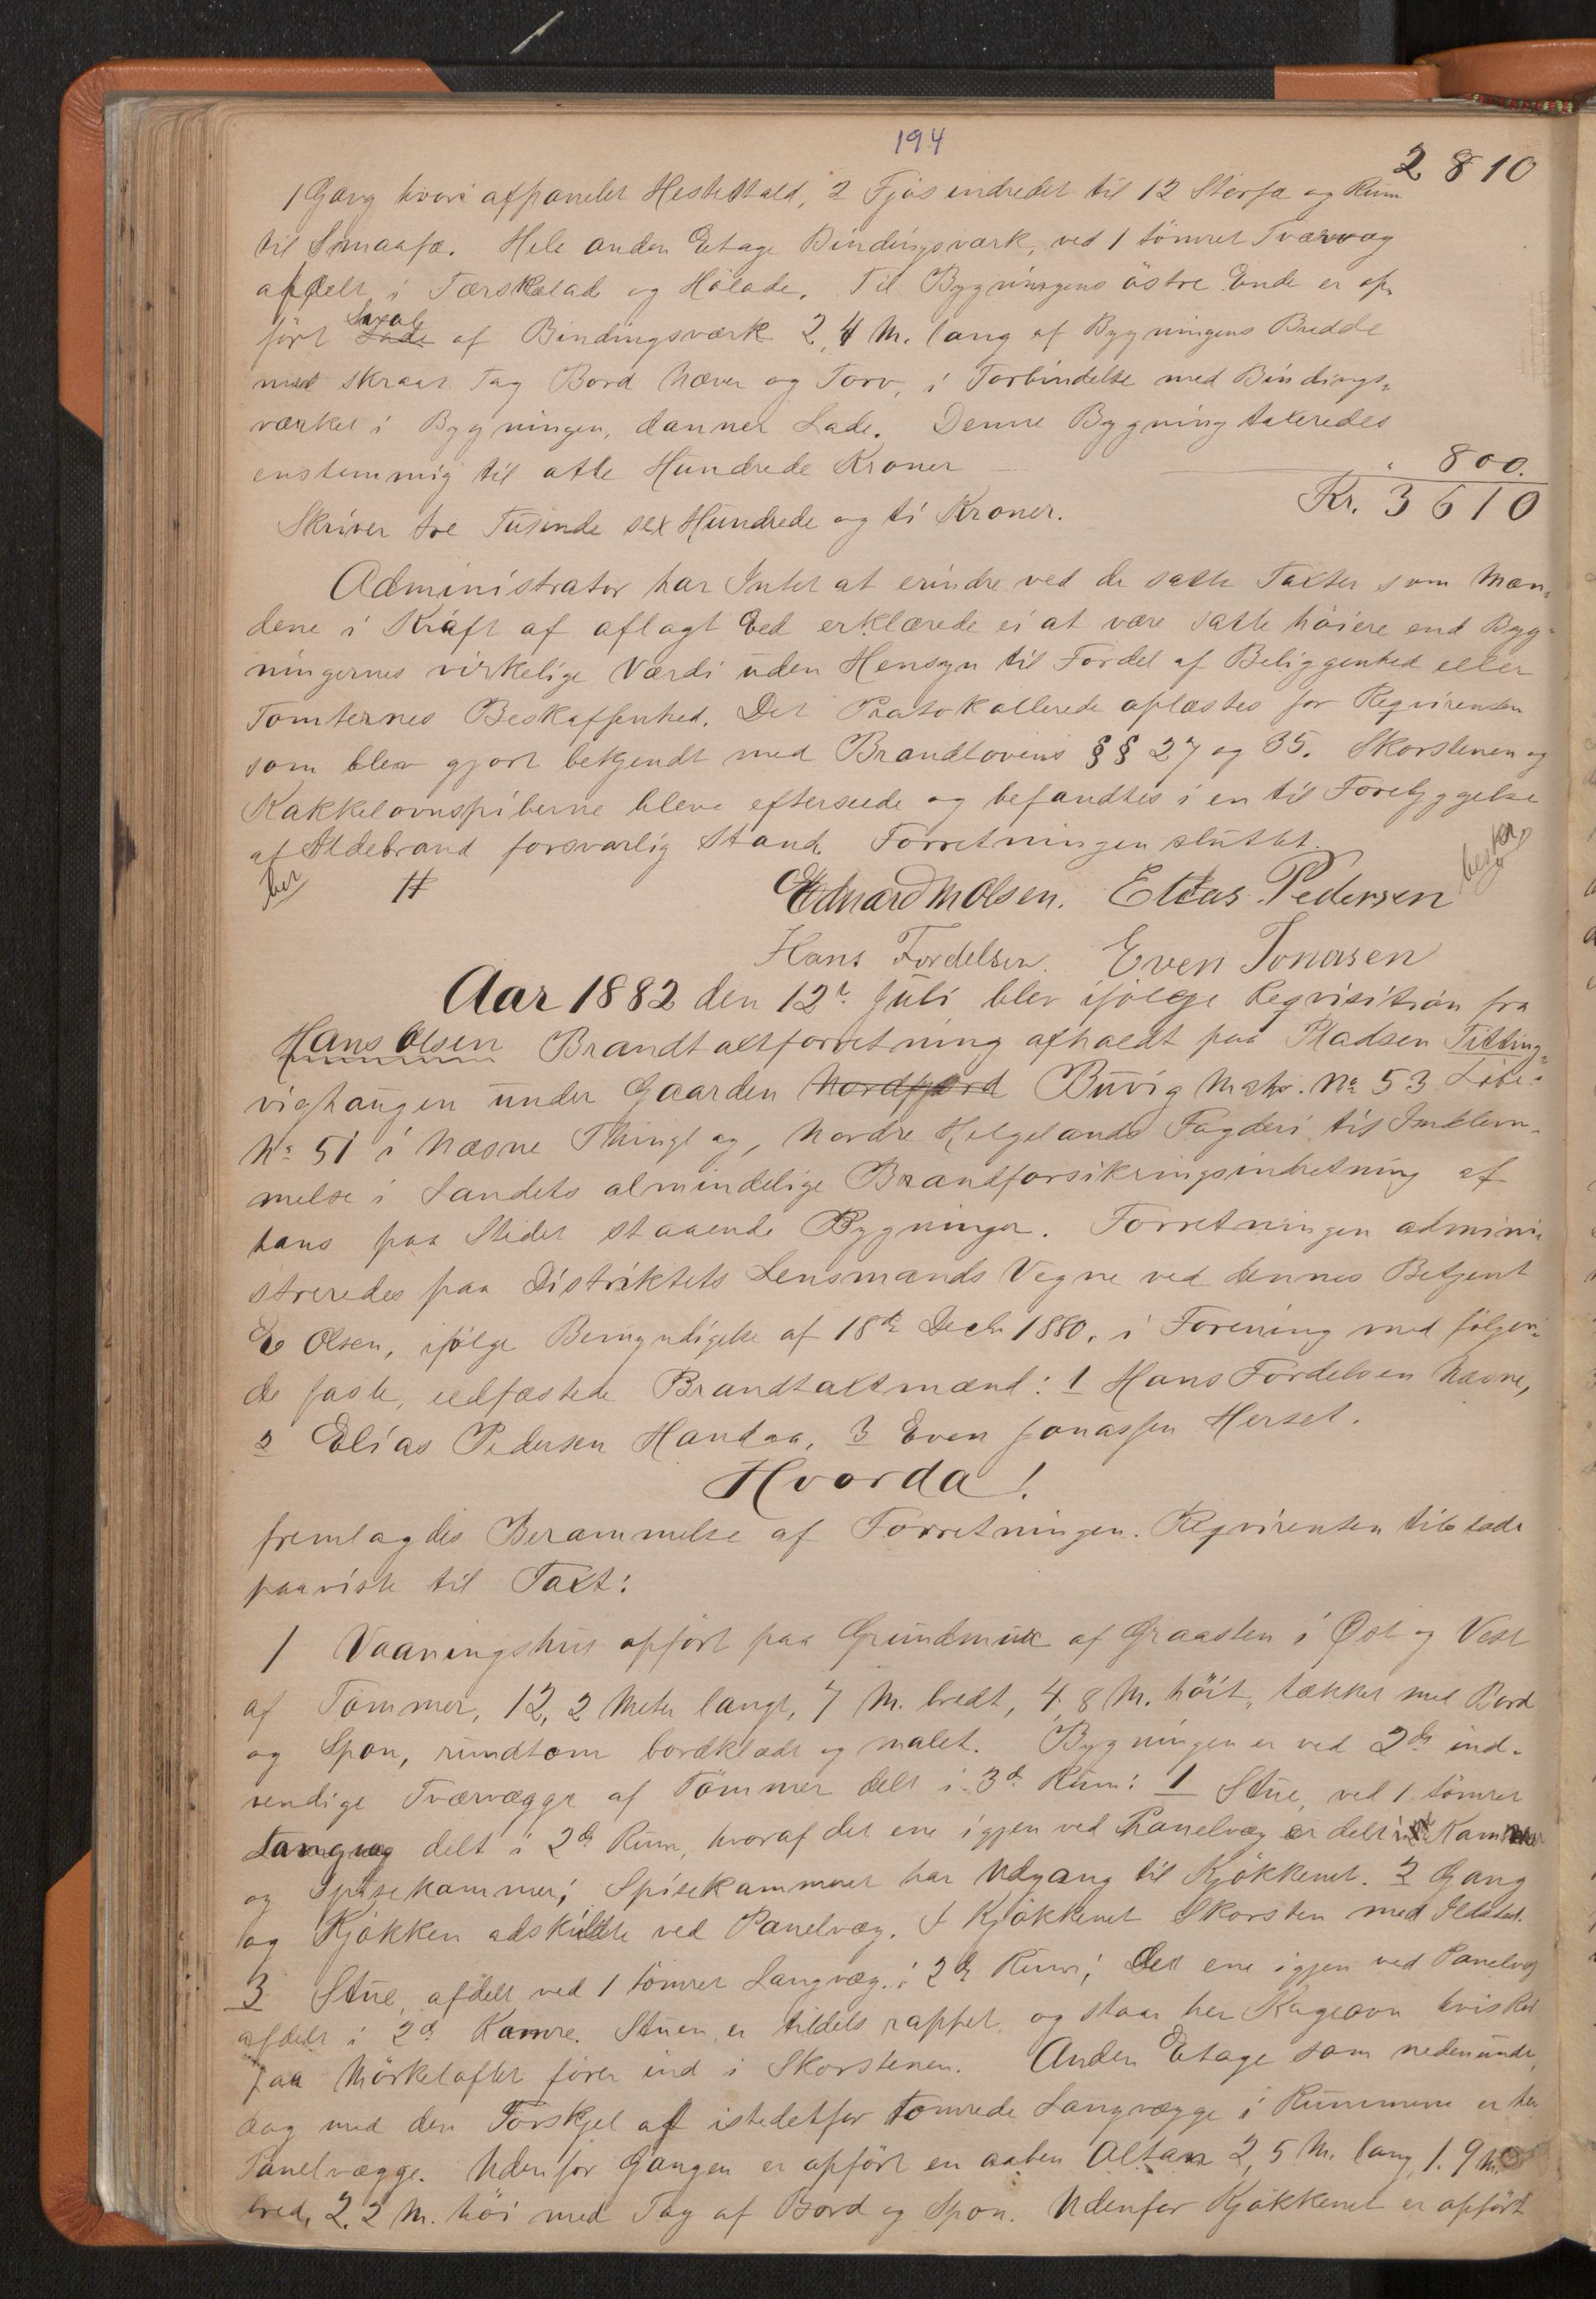 194
2810
1 Gang hvori afpanelet Hestestald, 2 Fjøs indredet til 12 Storfæ og Rum
til Smaafæ. Hele anden Etage Bindingsværk, ved 1 tömret Tværvæg
afdelt i Tærskelade og Hölade. Til Bygningens östre Ende er op-
fört Lade af Bindingsværk 2,4 M. lang af Bygningens Bredde
med skraat Tag Bord Næver og Torv, i Forbindelse med Bindings-
værket i Bygningen, danner Lade. Denne Bygning taxeredes
enstemmig til otte Hundrede Kroner — " 800.
Skriver tre Tusinde sex Hundrede og ti Kroner. Kr. 3610
Administrator har Intet at erindre ved de satte Taxter som Mæn-
dene i Kraft af aflagt Eed erklærede ei at være satte höiere end Byg-
ningernes virkelige Værdi uden Hensyn til Fordel af Beliggenhed eller
Tomternes Beskaffenhed. Det Protokollerede oplæstes for Reqvirenten
som blev gjort bekjendt med Brandlovens §§ 27 og 35. Skorstenen og
Kakkelovnspiberne bleve efterseede og befandtes i en til Forebyggelse
af Ildebrand forsvarlig Stand. Forretningen sluttet.
Edvard M Olsen. Elias Pedersen
Hans Fordelsen. Even Jonasen
Aar 1882 den 12te Juli blev ifölge Reqvisition fra
Hans Olsen Brandtaxtforretning afholdt paa Pladsen Titting-
vighaugen under Gaarden Nordfjord Buvig Matr. No 53 Löbe-
No 51 i Næsne Thinglag, Nordre Helgelands Fogderi til Indlem-
melse i Landets almindelige Brandforsikringsindretning af
hans paa Stedet staaende Bygninger. Forretningen admini-
streredes paa Distriktets Lensmands Vegne ved dennes Betjent
E Olsen, ifölge Bemyndigelse af 18de Decbr 1880, i Forening med fölgen-
de faste, eedfæstede Brandtaxtmænd: 1 Hans Fordelsen Næsne,
2 Elias Pedersen Handaa, 3 Even Jonassen Herset.
Hvorda!
fremlagdes Berammelse af Forretningen. Reqvirenten tilstede
paaviste til Taxt:
1 Vaaningshus opfört paa Grundmur af Graasten i Øst og Vest
af Tömmer, 12,2 Meter langt, 7 M. bredt, 4,8 M. höit, tækket med Bord
og Spon, rundtom bordklædt og malet. Bygningen er ved 2de ind-
vendige Tværvægge af Tömmer delt i 3de Rum: 1 Stue, ved 1 tömret
Langvæg delt i 2de Rum, hvoraf det ene igjen ved Panelvæg er delt i Kammer
og Spisekammer; Spisekammeret har Udgang til Kjökkenet. 2 Gang
og Kjökken adskildte ved Panelvæg. I Kjökkenet Skorsten med Ildsted.
3 Stue, afdelt ved 1 tömret Langvæg i 2de Rum; det ene igjen ved Panelvæg
afdelt i 2de Kamre. Stuen er tildels rappet og staar her Kageovn hvis Rör
paa Mörkeloftet förer ind i Skorstenen. Anden Etage som nedenunder,
dog med den Forskjel at istedetfor tömrede Langvægge i Rummene er her
Panelvægge. Udenfor Gangen er opfört en aaben Altan 2,5 M. lang, 1.9 M.
bred, 2.2 M. höi med Tag af Bord og Spon. Udenfor Kjökkenet er opfört